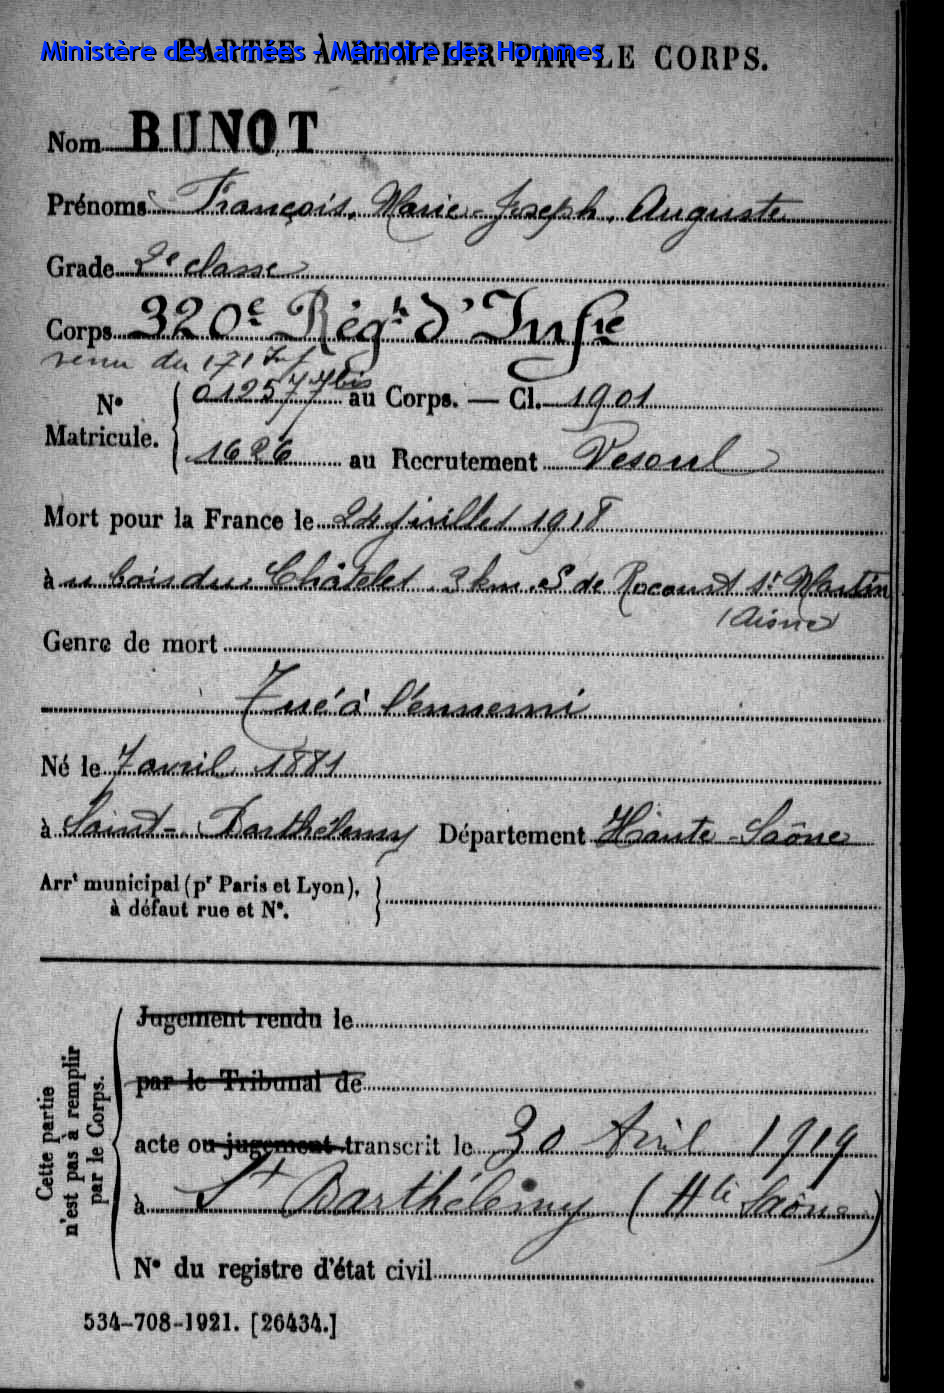 Ministère des armées - Mémoire des Hommes
PARTIE À REMPLIR PAR LE CORPS.
Nom BUNOT
Prénoms François, Marie-Joseph, Auguste
Grade 2e classe
Corps 320e Régt d'Infie
venu du 171 Inf
012577 bis au Corps. — Cl. 1901
N° Matricule.
1626 au Recrutement Vesoul
Mort pour la France le 24 juillet 1918
à u bois du Châtelet 3 km. S de Rocourt St Martin
(Aisne)
Genre de mort
Tué à l'ennemi
Né le 7 avril 1881
à Saint-Barthélemy Département Haute-Saône
Arrt municipal (pr Paris et Lyon),
à défaut rue et N°.
Cette partie
n'est pas à remplir
par le Corps.
Jugement rendu le
par le Tribunal de
acte ou jugement transcrit le 30 Avril 1919
à St Barthélemy (Hte Saône)
N° du registre d'état civil
534-708-1921. [26434.]